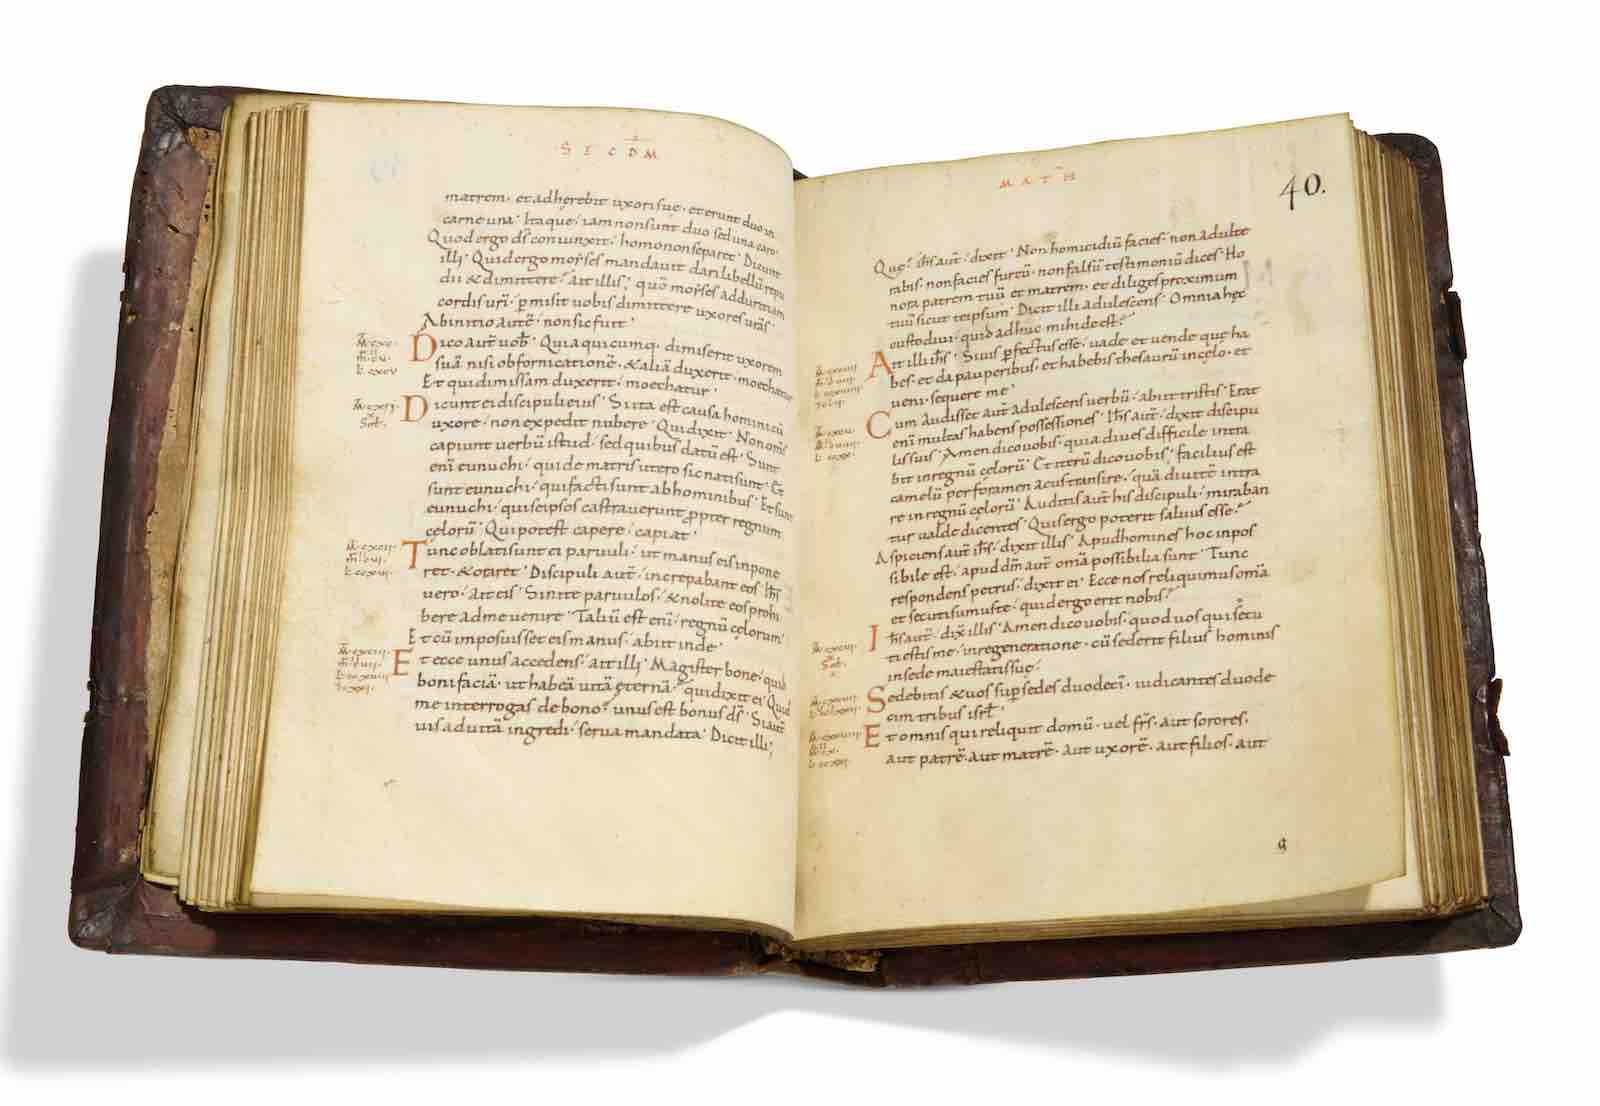 SECDM
matrem· et adherebit uxori suę· et erunt duo in
carne una· Itaque· iam non sunt duo sed una caro·
Quod ergo d̄s coniunxit· homo non separet· Dicunt
illi· Quid ergo moyses mandavit dari libellū repu
dii & dimittere· ait illis· quō moyses ad duritiam
cordis vr̄i· p̄misit vobis dimittere uxores vr̄as·
Ab initio autē· non sic fuit·
Dico aut̄ vob̄· Quia quicumq· dimiserit uxorem
suā nisi ob fornicationē· & aliā duxerit· moechatur
Et qui dimissam duxerit· moechatur·
Dicunt ei discipuli eius· Si ita est causa homini cū
uxore· non expedit nubere· Qui dixit· Non om̄s
capiunt verbū istud· sed quibus datū est· Sunt
enī eunuchi· qui de matris utero sic nati sunt· Et
sunt eunuchi· qui facti sunt ab hominibus· Et sunt
eunuchi· qui se ipsos castraverunt propter regnum
cęlorū· Qui potest capere· capiat·
Tunc oblati sunt ei parvuli· ut manus eis inpone
ret· & oraret· Discipuli aut̄· increpabant eos· Ih̄s
vero· ait eis· Sinite parvulos· & nolite eos prohi
bere ad me venire· Taliū est enī· regnū cęlorum·
Et cū imposuisset eis manus· abiit inde·
Et ecce unus accedens· ait illi· Magister bone· quid
boni faciā· ut habeā vitā ęternā· qui dixit ei· Quid
me interrogas de bono· unus est bonus d̄s· Si aut̄
vis ad vitā ingredi· serva mandata· Dicit illi;
MATH
40.
Quę· ih̄s aut̄· dixit· Non homicidiū facies· non adulte
rabis· non facies furtū· non falsū testimoniū dices· Ho
nora patrem tuū et matrem· et diliges proximum
tuū sicut teipsum· Dicit illi adulescens· Omnia hęc
custodivi· quid adhuc mihi deest?
Ait illi ih̄s· Si vis p̄fectus esse· vade et vende quę ha
bes· et da pauperibus· et habebis thesaurū in cęlo· et
veni· sequere me·
Cum audisset aut̄ adulescens verbū· abiit tristis· Erat
enī multas habens possessiones· Ih̄s aut̄· dixit discipu
lis suis· Amen dico vobis· quia dives difficile intra
bit in regnū cęlorū· Et iterū dico vobis· facilius est
camelū per foramen acus transire· quā divitē intra
re in regnū cęlorū· Auditis aut̄ his discipuli· miraban
tur valde dicentes· Quis ergo poterit salvus esse?
Aspiciens aut̄ ih̄s· dixit illis· Apud homines hoc inpos
sibile est· apud dm̄ aut̄ om̄a possibilia sunt· Tunc
respondens petrus· dixit ei· Ecce nos reliquimus om̄a
et secuti sumus te· quid ergo erit nobis?
Ih̄s aut̄· dix̄ illis· Amen dico vobis· quod vos qui secu
ti estis me· in regeneratione· cū sederit filius hominis
in sede maiestatis suę·
Sedebitis & vos sup̄ sedes duodecī· iudicantes duode
cim tribus isrl̄·
Et omnis qui reliquit domū· vel fr̄s· aut sorores·
aut patrē· aut matrē· aut uxorē· aut filios· aut